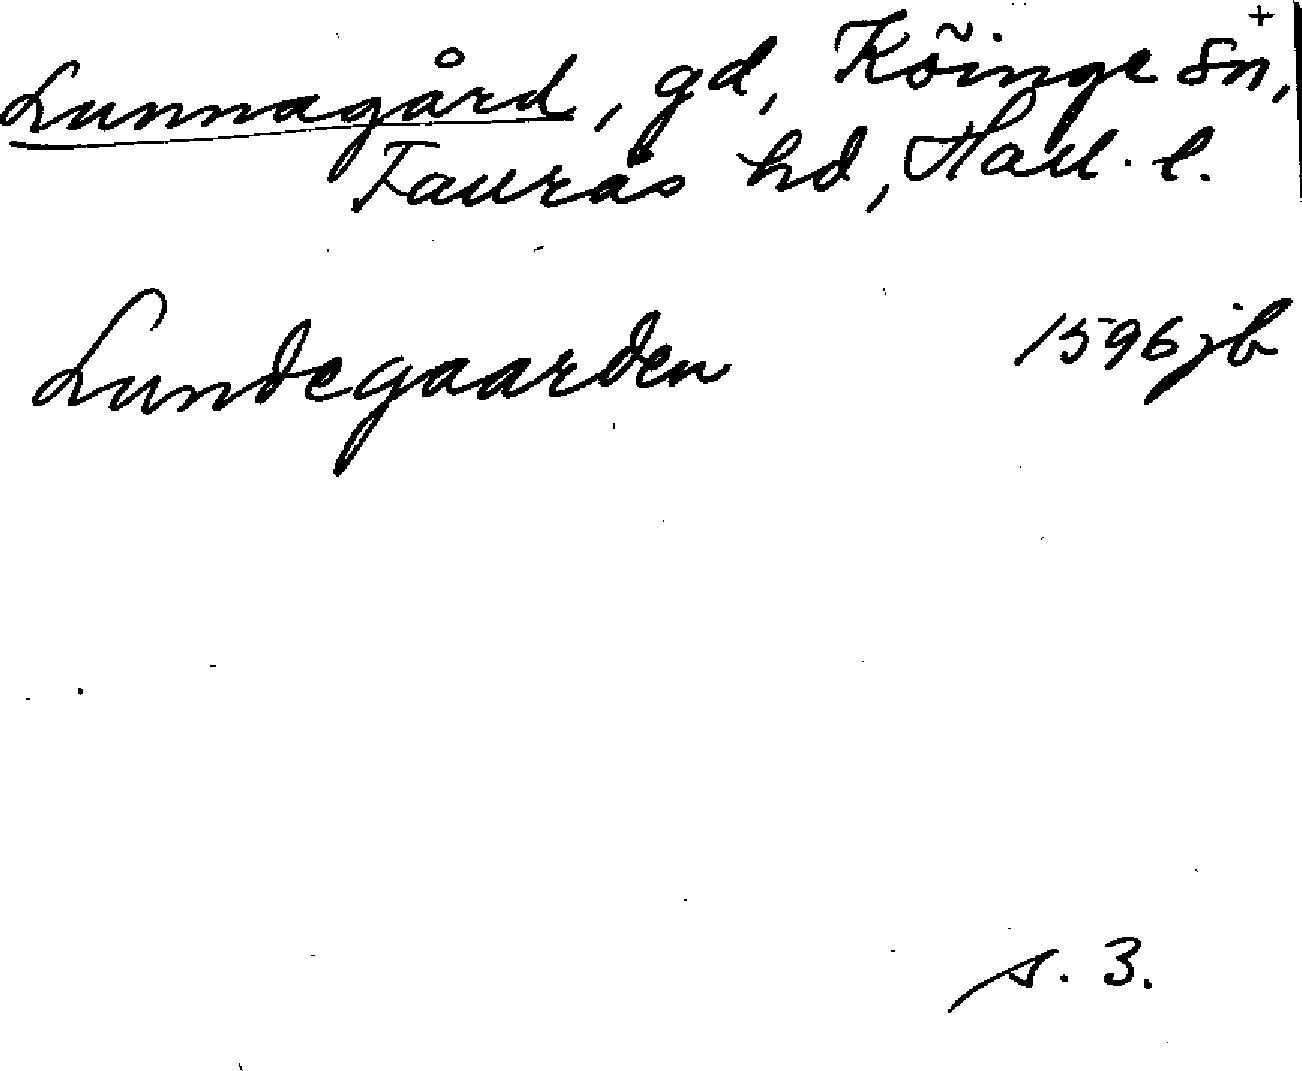 +
Lunnagård, gd, Köinge sn,
Faurås hd, Hall. l.
Lundegaarden 1596 jb
s. 3.